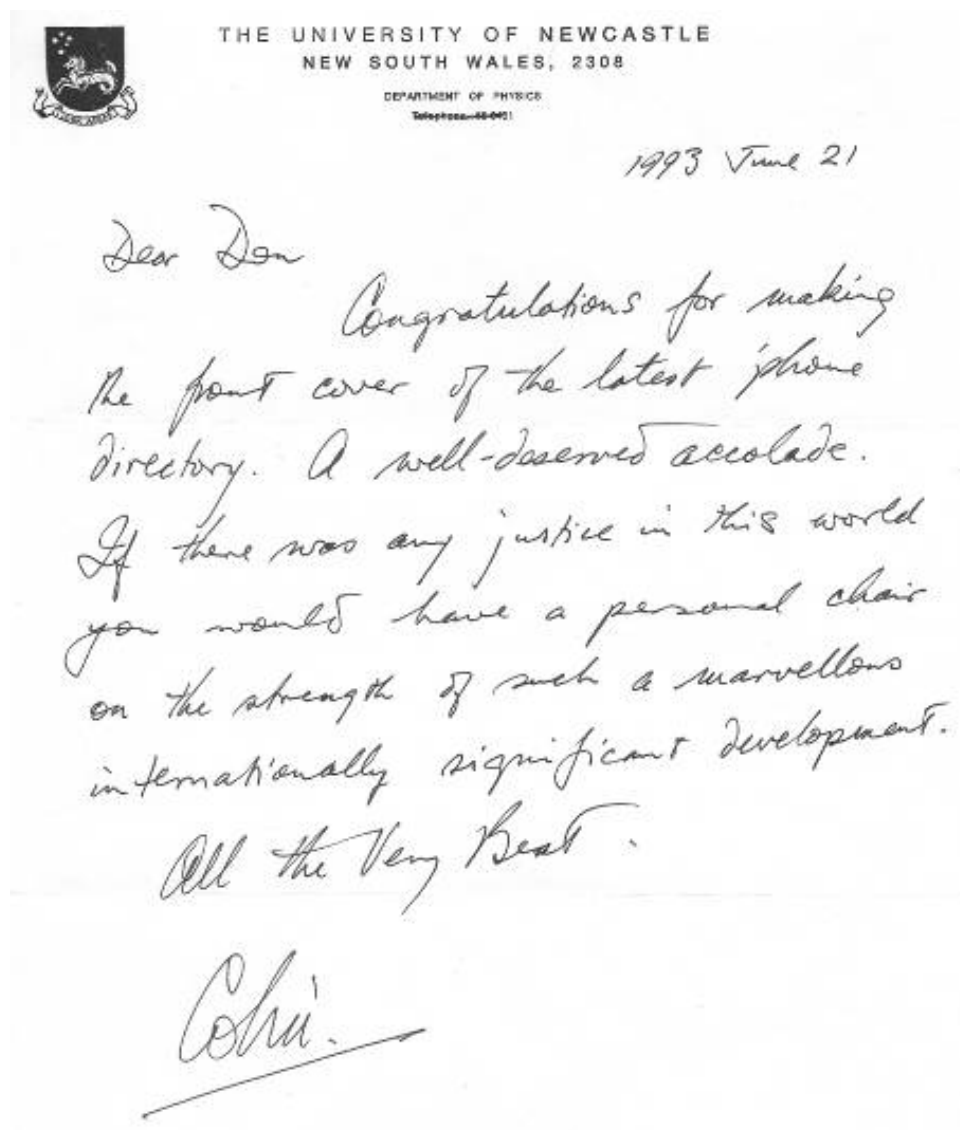 THE UNIVERSITY OF NEWCASTLE
NEW SOUTH WALES, 2308
DEPARTMENT OF PHYSICS
Telephone
1993 June 21
Dear Don
Congratulations for making
the front cover of the latest 'phone
directory. A well-deserved accolade.
If there was any justice in this world
you would have a personal chair
on the strength of such a marvellous
internationally significant development.
All the Very Best.
Colin.